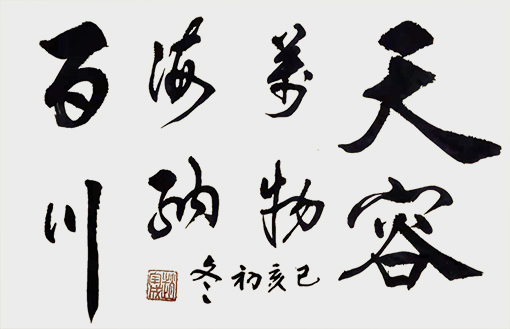 天容
萬物
海納
百川
己亥初冬